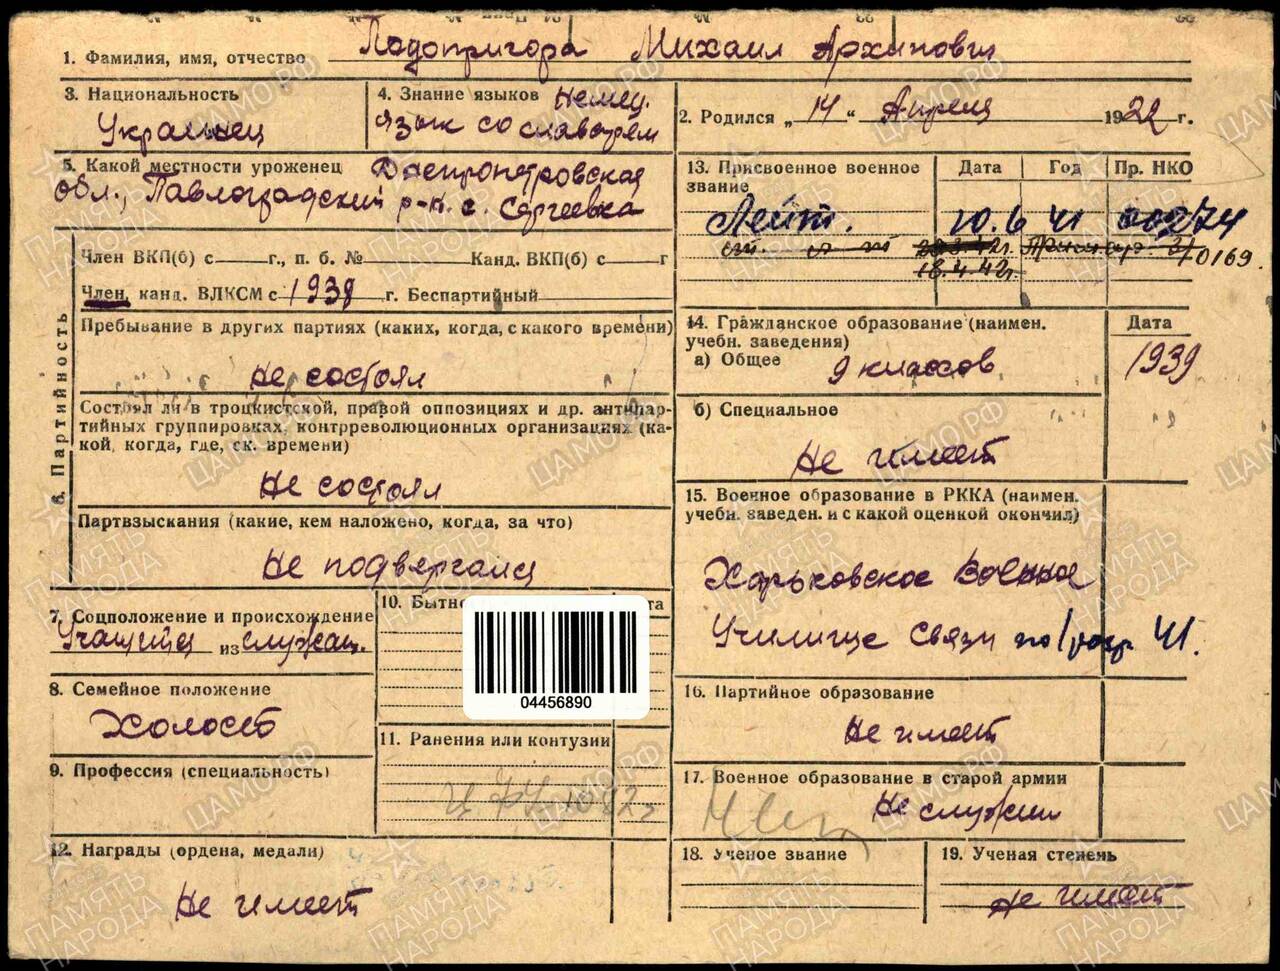 1. Фамилия, имя, отчество Подопригора Михаил Архипович
3. Национальность Украинец
4. Знание языков Немец.
язык со словарём
2. Родился „14“ Апреля 1922 г.
5. Какой местности уроженец Днепропетровская
обл., Павлоградский р-н. с. Сергеевка
13. Присвоенное военное звание
Дата Год Пр. НКО
Лейт. 10.6 41 00274
18.4.42г. 0169.
6. Партийность
Член ВКП(б) с г., п. б. № Канд. ВКП(б) с г
Член, канд. ВЛКСМ с 1938 г. Беспартийный
Пребывание в других партиях (каких, когда, с какого времени)
Не состоял
Состоял ли в троцкистской, правой оппозициях и др. антипар-
тийных группировках, контрреволюционных организациях (ка-
кой, когда, где, ск. времени)
Не состоял
Партвзыскания (какие, кем наложено, когда, за что)
Не подвергался
14. Гражданское образование (наимен.
учебн. заведения)
Дата
а) Общее 9 классов 1939
б) Специальное
Не имеет
15. Военное образование в РККА (наимен.
учебн. заведен. и с какой оценкой окончил)
Харьковское Военное
Училище Связи по 41.
7. Соцположение и происхождение
Учащийся из служащ.
8. Семейное положение
Холост
9. Профессия (специальность)
10.
04456890
11. Ранения или контузии
16. Партийное образование
Не имеет
17. Военное образование в старой армии
Не служил
12. Награды (ордена, медали)
Не имеет
18. Ученое звание
19. Ученая степень
Не имеет
ЦАМО.РФ
ПАМЯТЬ
НАРОДА